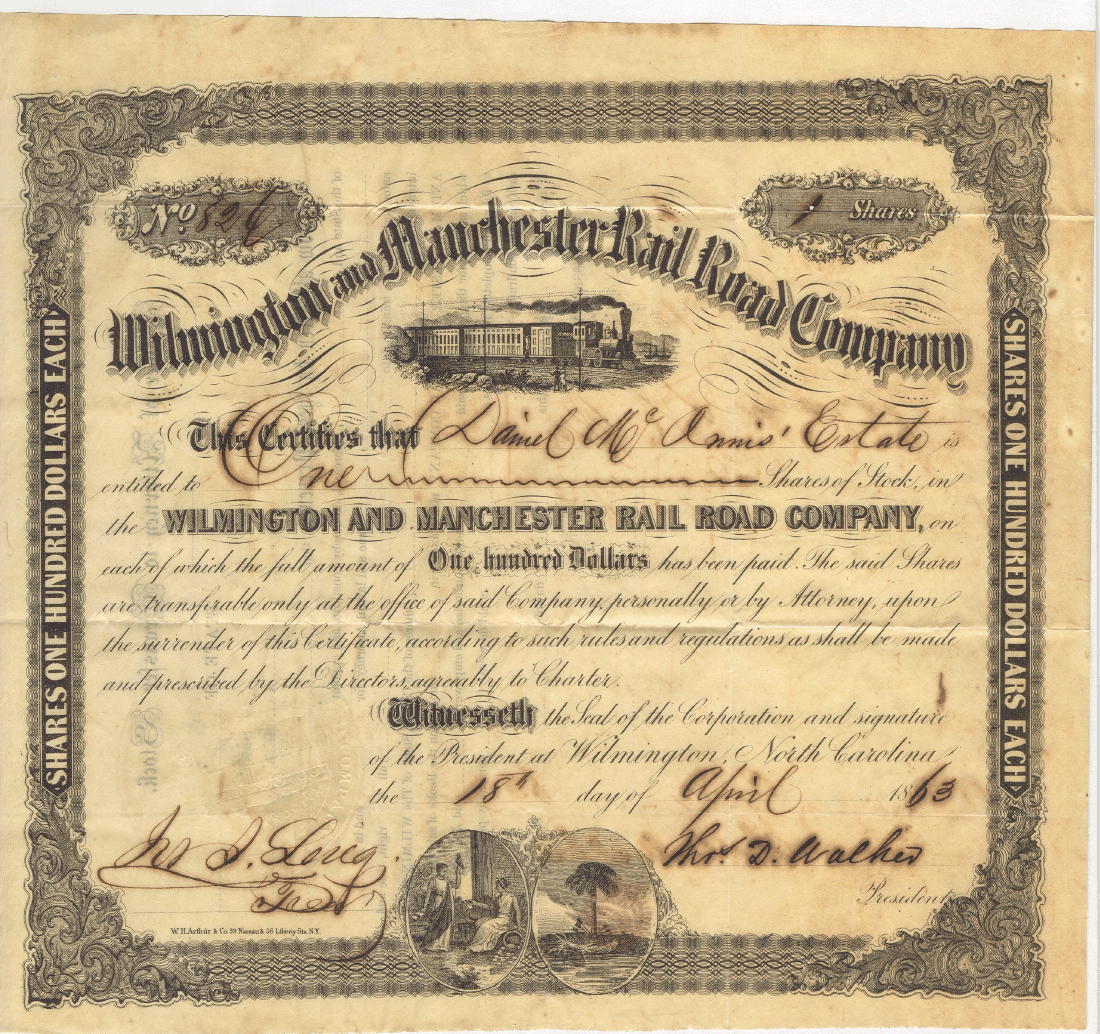 No. 826
1 Shares
Wilmington and Manchester Rail Road Company
This Certifies that Daniel Mc Innis' Estate is
entitled to One Shares of Stock, in
the WILMINGTON AND MANCHESTER RAIL ROAD COMPANY, on
each of which the full amount of One hundred Dollars has been paid. The said Shares
are transfirable only at the office of said Company, personally or by Attorney, upon
the surrender of this Certificate, according to such rules and regulations as shall be made
and prescribed by the Directors, agreeably to Charter.
Witnesseth the Seal of the Corporation and signature
of the President at Wilmington, North Carolina
the 18th day of April 1863
Thos. D. Walker
President
W. H. Arthur & Co. 39 Nassau & 56 Liberty Sts. N.Y.
SHARES ONE HUNDRED DOLLARS EACH
SHARES ONE HUNDRED DOLLARS EACH